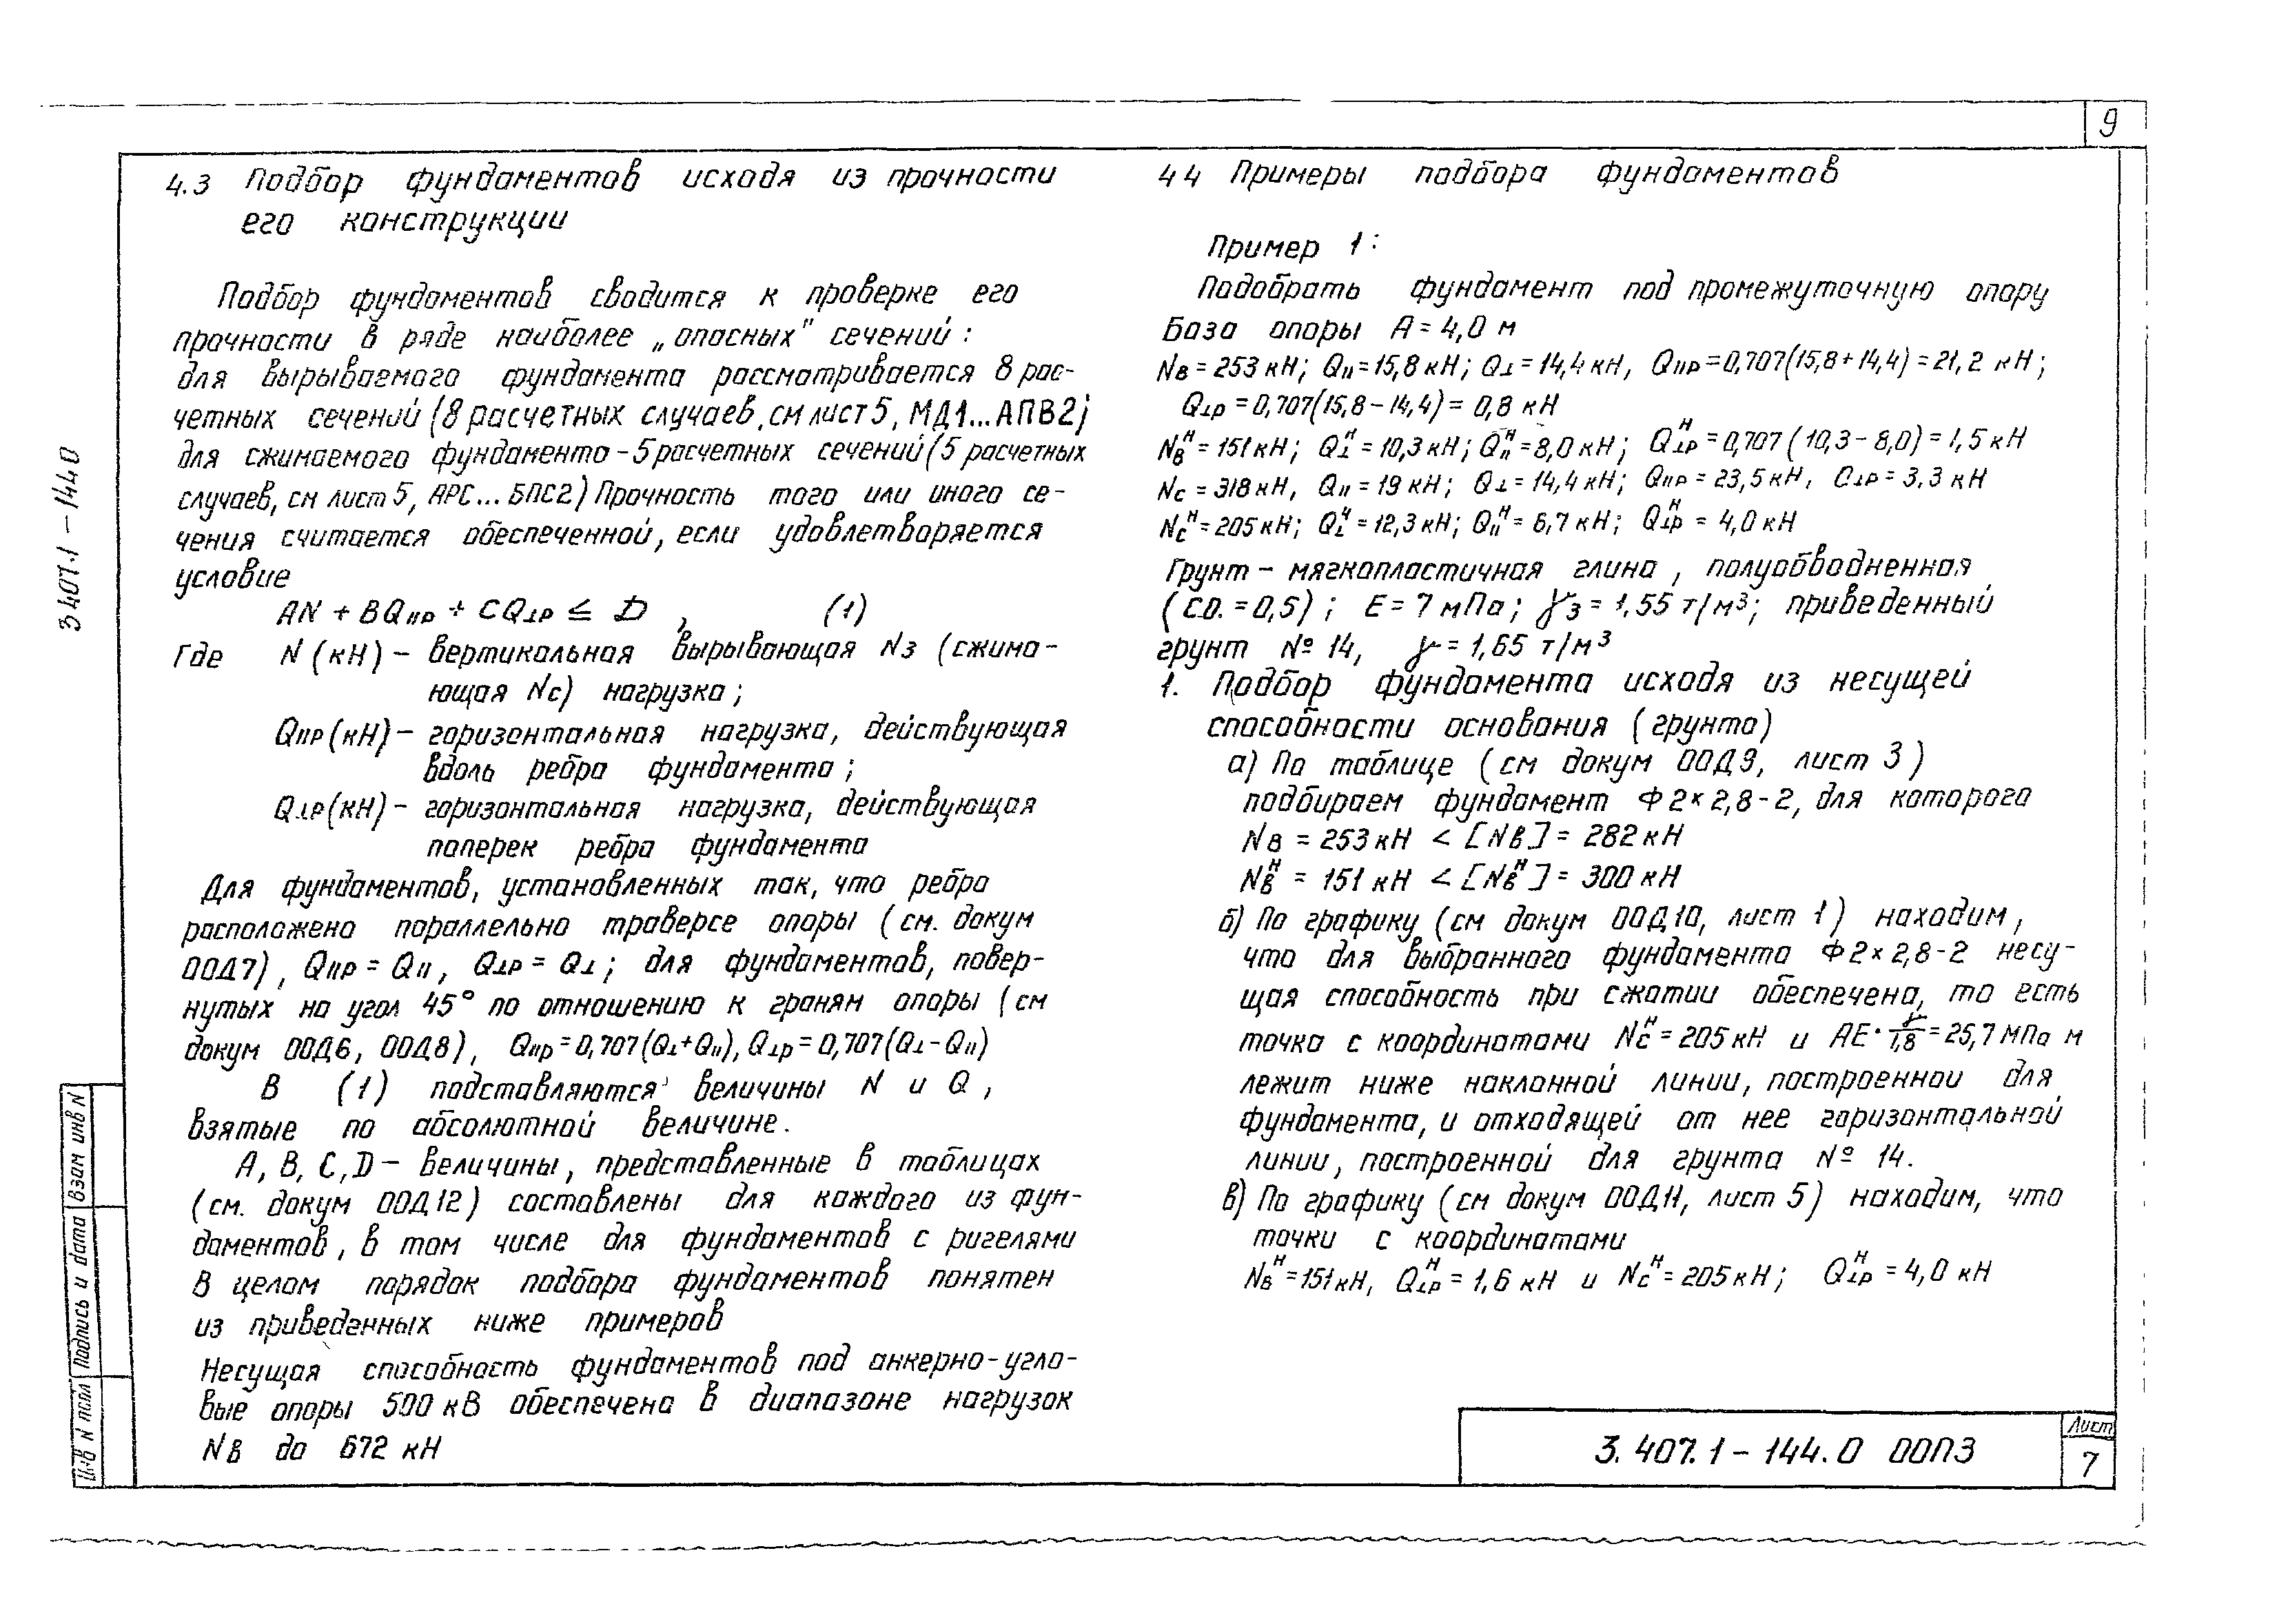 9
3 407.1 - 144.0
4.3 Подбор фундаментов исходя из прочности
его конструкции
Подбор фундаментов сводится к проверке его
прочности в ряде наиболее „опасных" сечений:
для вырываемого фундамента рассматривается 8 рас-
четных сечений (8 расчетных случаев, см лист 5, МД1...АПВ2)
для сжимаемого фундамента - 5 расчетных сечений (5 расчетных
случаев, см лист 5, АРС... БПС2) Прочность того или иного се-
чения считается обеспеченной, если удовлетворяется
условие
AN + BQııр + CQ⊥р ≤ D , (1)
Где N (кН) - вертикальная вырывающая Nз (сжима-
ющая Nc) нагрузка;
Qııр (кН) - горизонтальная нагрузка, действующая
вдоль ребра фундамента;
Q⊥р (кН) - горизонтальная нагрузка, действующая
поперек ребра фундамента
Для фундаментов, установленных так, что ребра
расположено параллельно траверсе опоры (см. докум
00Д7), Qııр = Qıı, Q⊥р = Q⊥; для фундаментов, повер-
нутых на угол 45° по отношению к граням опоры (см
докум 00Д6, 00Д8), Qııр = 0,707(Q⊥+Qıı), Q⊥р = 0,707(Q⊥-Qıı)
В (1) подставляются величины N и Q,
взятые по абсолютной величине.
А, В, С, D - величины, представленные в таблицах
(см. докум 00Д12) составлены для каждого из фун-
даментов, в том числе для фундаментов с ригелями
В целом порядок подбора фундаментов понятен
из приведенных ниже примеров
Несущая способность фундаментов под анкерно-угло-
вые опоры 500 кВ обеспечена в диапазоне нагрузок
Nв до 672 кН
4 4 Примеры подбора фундаментов
Пример 1:
Подобрать фундамент под промежуточную опору
База опоры А = 4,0 м
Nв = 253 кН; Qıı = 15,8 кН; Q⊥ = 14,4 кН, Qııр = 0,707(15,8 + 14,4) = 21,2 кН;
Q⊥р = 0,707(15,8 - 14,4) = 0,8 кН
Nвᴴ = 151 кН; Q⊥ᴴ = 10,3 кН; Qııᴴ = 8,0 кН; Q⊥рᴴ = 0,707 (10,3 - 8,0) = 1,5 кН
Nc = 318 кН, Qıı = 19 кН; Q⊥ = 14,4 кН; Qııр = 23,5 кН, Q⊥р = 3,3 кН
Ncᴴ = 205 кН; Q⊥ᴴ = 12,3 кН; Qııᴴ = 6,7 кН; Q⊥рᴴ = 4,0 кН
Грунт - мягкопластичная глина, полуобводненная
(С.О. = 0,5); Е = 7 мПа; γз = 1,55 т/м³; приведенный
грунт № 14, γ = 1,65 т/м³
1. Подбор фундамента исходя из несущей
способности основания (грунта)
а) По таблице (см докум 00Д9, лист 3)
подбираем фундамент Ф2×2,8-2, для которого
Nв = 253 кН < [Nв] = 282 кН
Nвᴴ = 151 кН < [Nвᴴ] = 300 кН
б) По графику (см докум 00Д10, лист 1) находим,
что для выбранного фундамента Ф2×2,8-2 несу-
щая способность при сжатии обеспечена, то есть
точка с координатами Ncᴴ = 205 кН и АЕ·γ/1,8 = 25,7 МПа м
лежит ниже наклонной линии, построенной для
фундамента, и отходящей от нее горизонтальной
линии, построенной для грунта № 14.
в) По графику (см докум 00Д11, лист 5) находим, что
точки с координатами
Nвᴴ = 151 кН, Q⊥рᴴ = 1,6 кН и Ncᴴ = 205 кН; Q⊥рᴴ = 4,0 кН
Взам инв N
Подпись и дата
Инв N подл
3. 407. 1 - 144. 0 00ПЗ
Лист
7